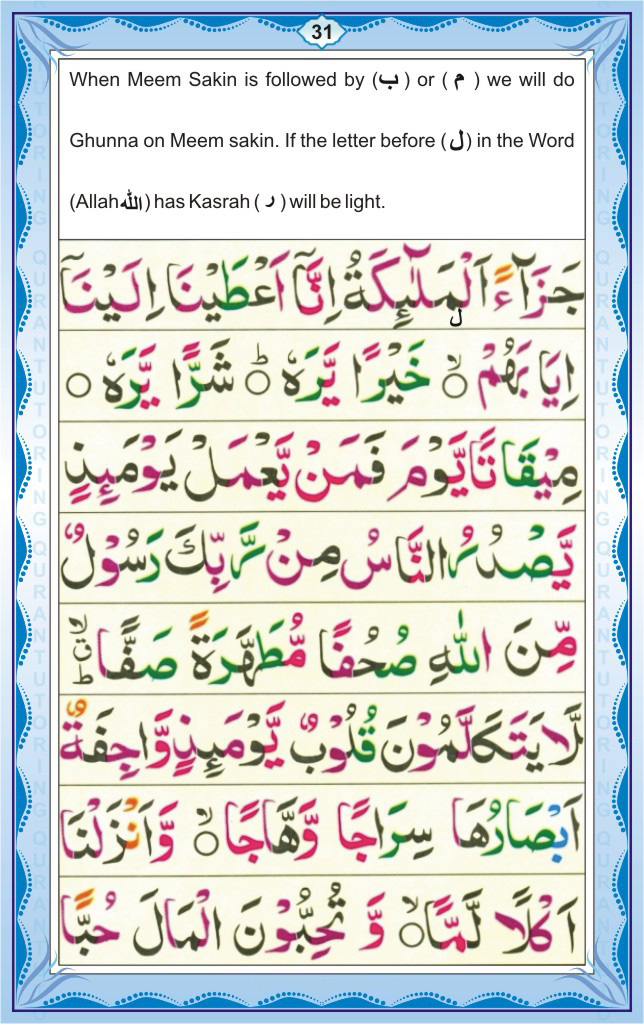 31
When Meem Sakin is followed by (ب) or (م) we will do
Ghunna on Meem sakin. If the letter before (ل) in the Word
(Allah الله) has Kasrah (ر) will be light.
جَزَآءً اَلْمَلٰٓئِكَةُ اِنَّآ اَعْطَيْنَا اِلَيْنَآ
ل
اِيَابَهُمْ ۙ خَيْرًا يَّرَهٗ ؕ شَرًّا يَّرَهٗ
مِيْقَاتًا يَّوْمَ فَمَنْ يَّعْمَلْ يَوْمَئِذٍ
يَّصْدُرُ النَّاسُ مِنْ رَّبِّكَ رَسُوْلٌ
مِّنَ اللّٰهِ صُحُفًا مُّطَهَّرَةً صَفًّا
لَّا يَتَكَلَّمُوْنَ قُلُوْبٌ يَّوْمَئِذٍ وَّاجِفَةٌ
اَبْصَارُهَا سِرَاجًا وَّهَّاجًا ۙ وَّاَنْزَلْنَا
اَكْلًا لَّمًّا ۙ وَّ تُحِبُّوْنَ الْمَالَ حُبًّا
QURAN TUTORING